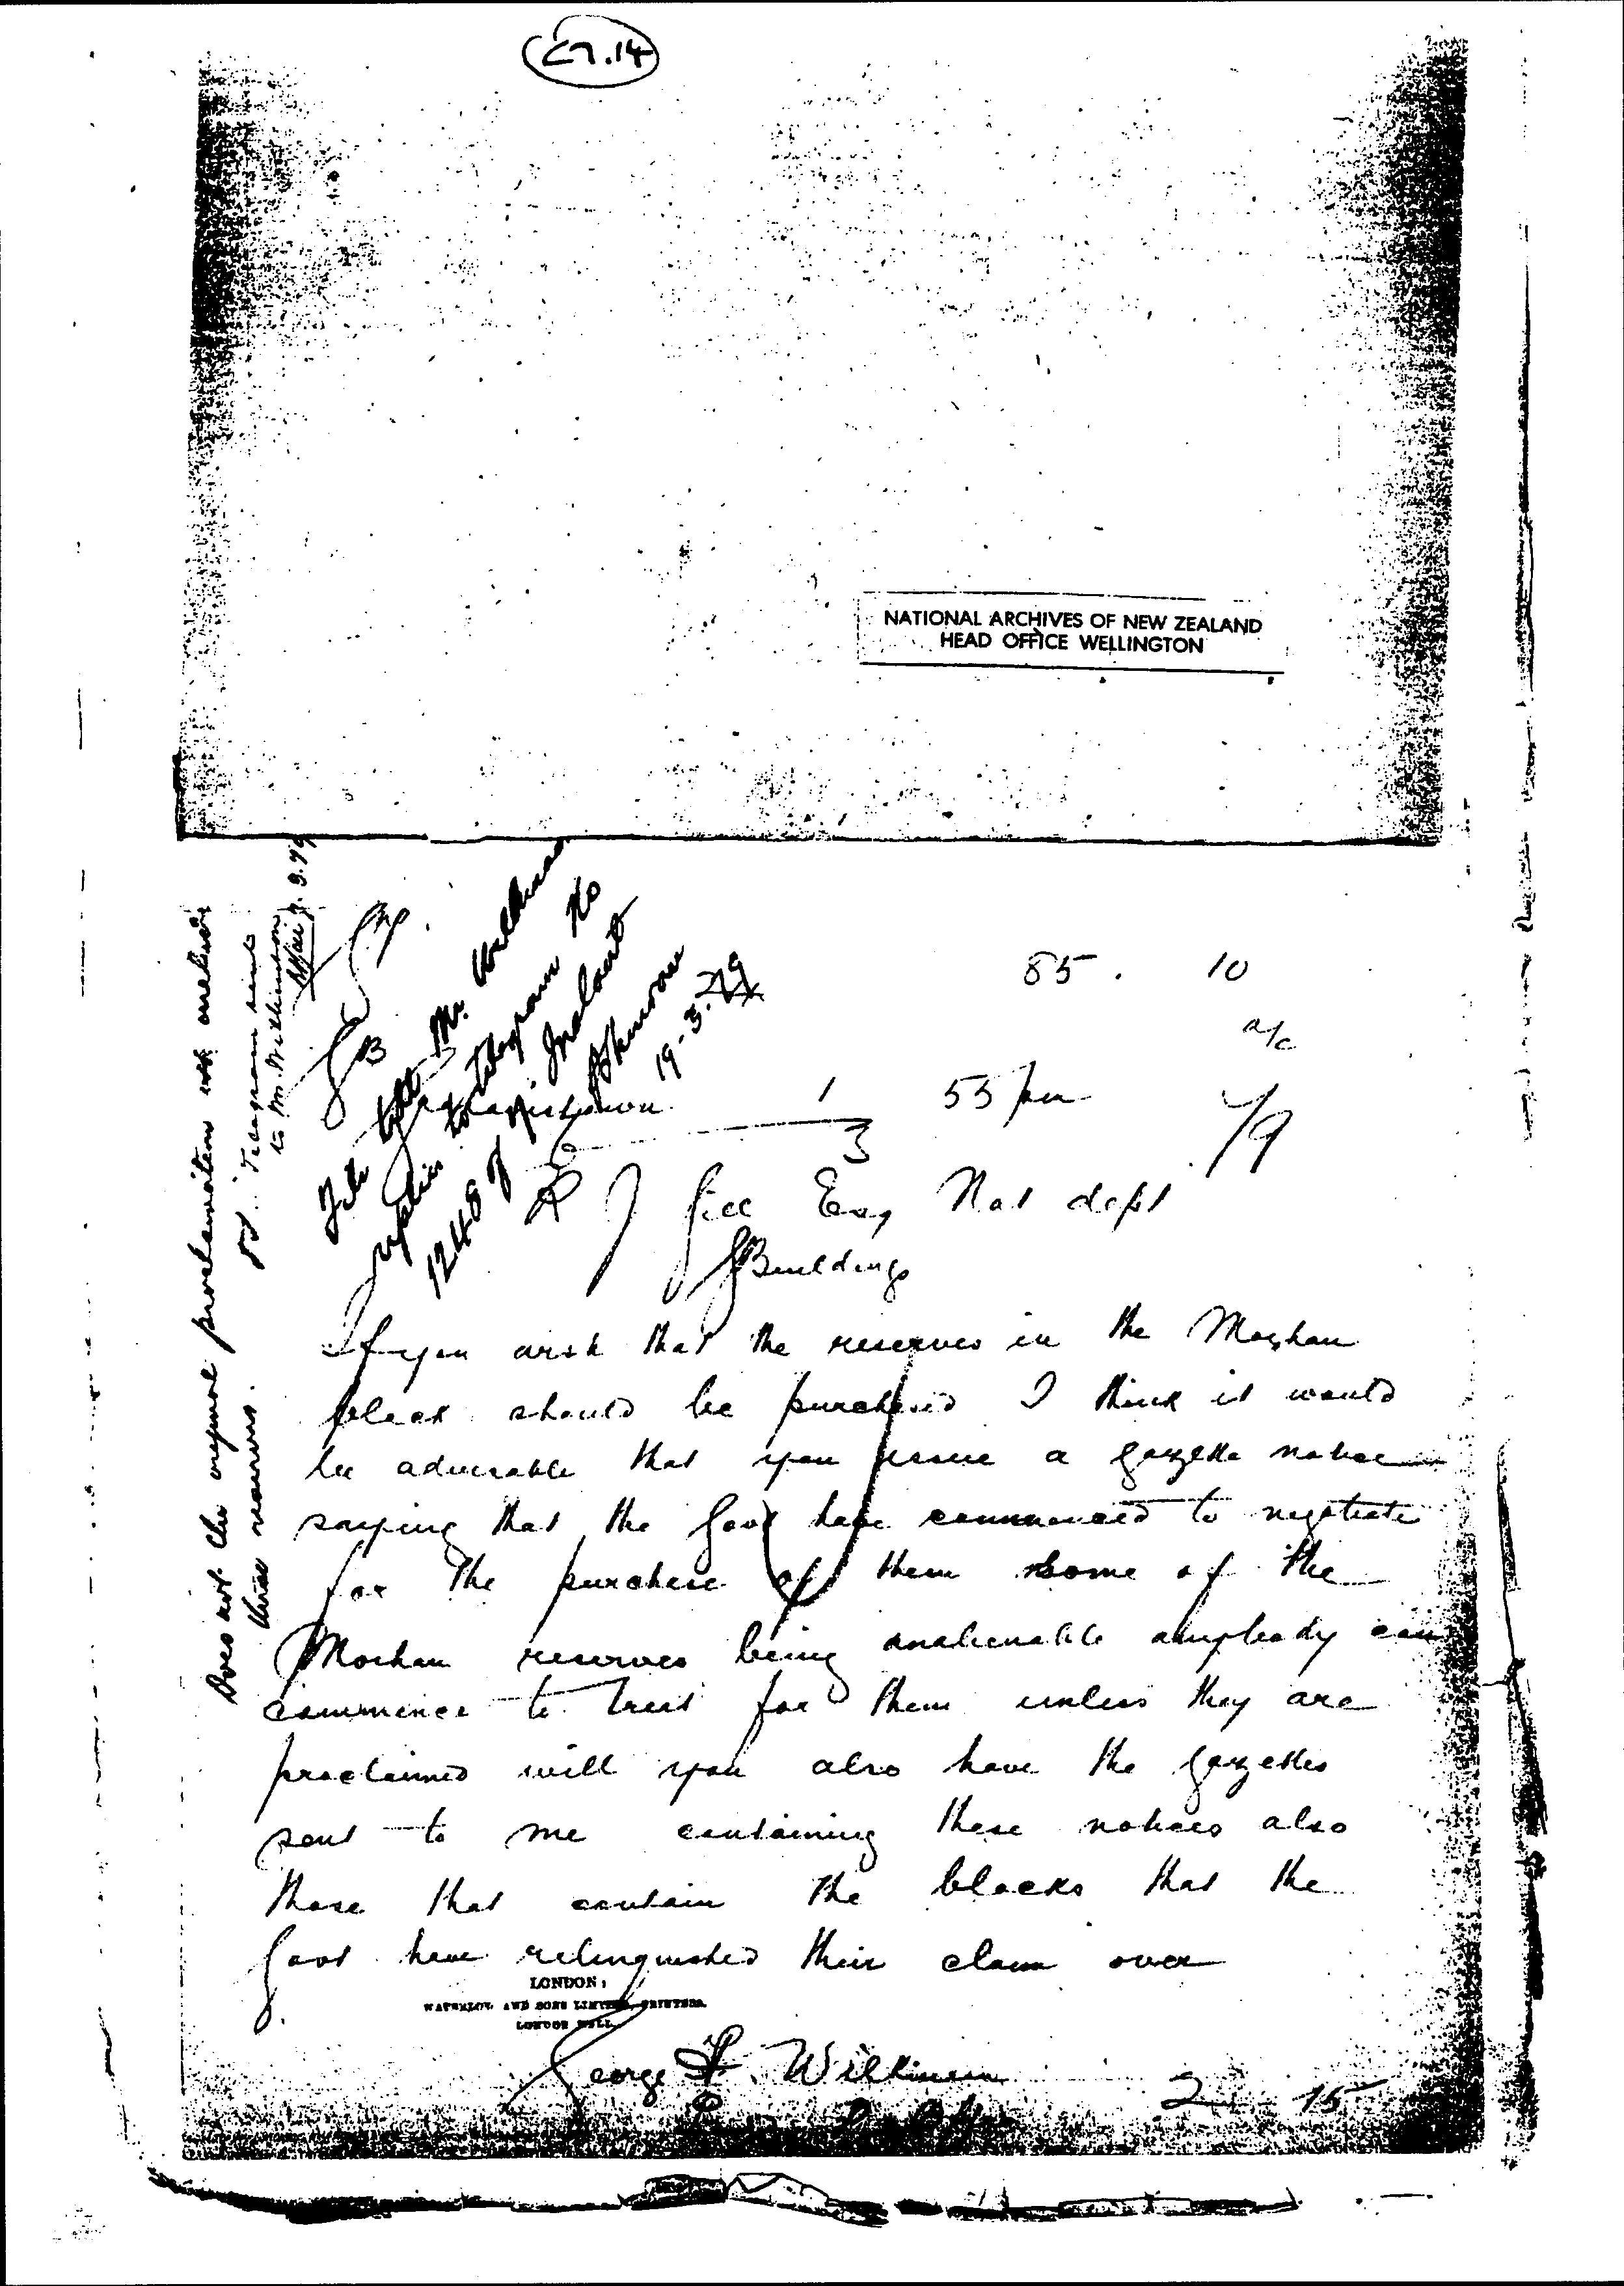 C7.14
NATIONAL ARCHIVES OF NEW ZEALAND
HEAD OFFICE WELLINGTON
Does not the original proclamation
these reserves.
Telegram sent
to Mr. Wilkinson
File Mr. Wilkinson
telegram No
1240 of
19-3-79
85. 10
a/c
1 55 pm
3
Gill Esq Nat dept
G Buildings
If you wish that the reserves in the Moehau
block should be purchased I think it would
be adviseable that you issue a gazette notice
saying that the Govt have commenced to negotiate
for the purchase of them some of the
Moehau reserves being analienable anybody can
commence to treat for them unless they are
proclaimed will you also have the gazettes
sent to me containing these notices also
those that contain the blocks that the
Govt have relinquished their claim over
LONDON:
WATERLOW AND SONS LIMITED, PRINTERS,
LONDON WALL.
George Wilkinson
2 15